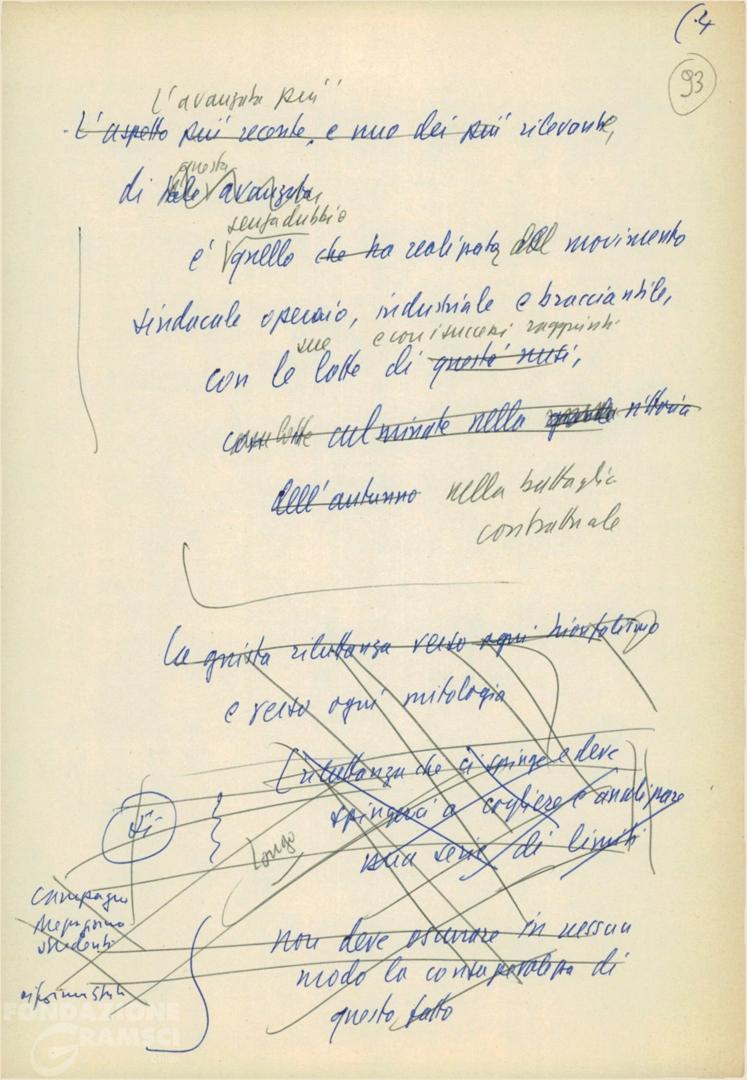 (4
93
L'avanzata più
- L'aspetto più recente, e uno dei più rilevante,
questa
di tale avanzata,
senza dubbio
e' quello che ha realizzata dal movimento
sindacale operaio, industriale e bracciantile,
sue e con i successi raggiunti
con le lotte di questi mesi,
con lotte culminate nella grande vittoria
dell'autunno nella battaglia
contrattuale
La giusta riluttanza verso ogni trionfalismo
e verso ogni mitologia
[riluttanza che ci spinge e deve
spingerci a cogliere e analizzare
una serie di limiti
Longo
Campagna
Mezzogiorno
studenti
non deve oscurare in nessun
modo la consapevolezza di
questo fatto
FONDAZIONE
GRAMSCI